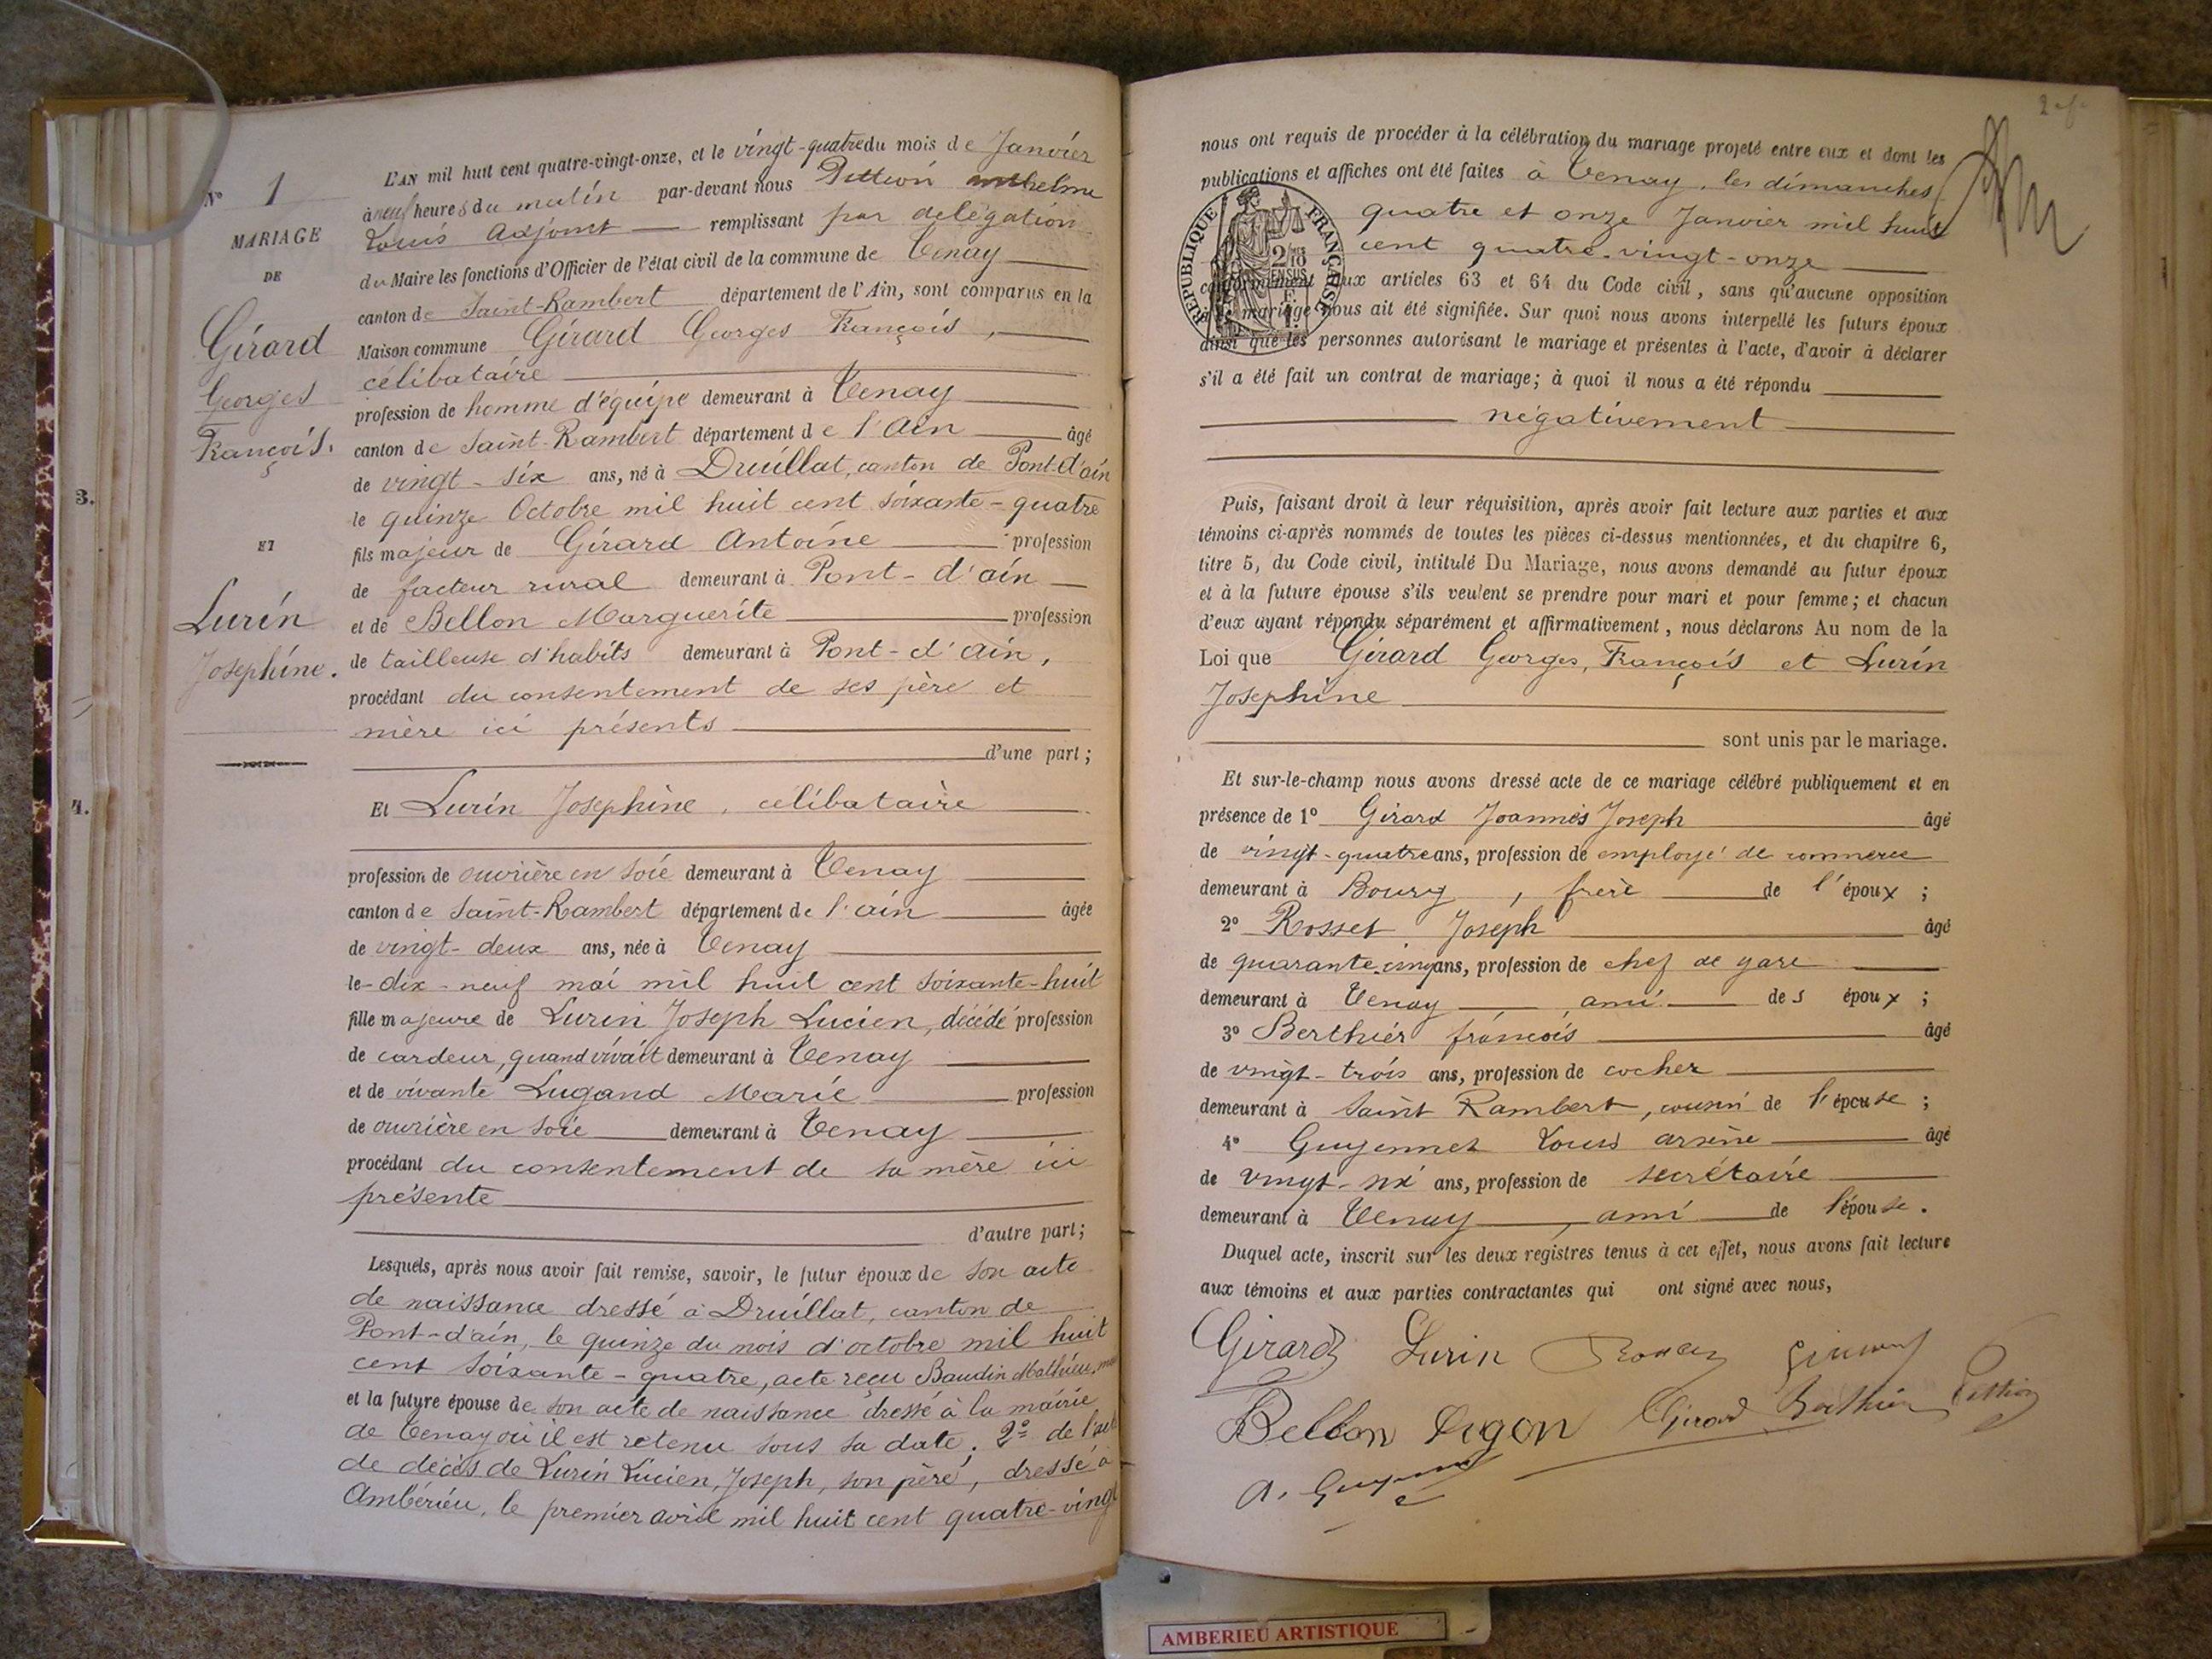 N° 1
MARIAGE
DE
Girard
Georges
François.
ET
Lurin
Josephine.
3.
4.
L'AN mil huit cent quatre-vingt-onze, et le vingt-quatre du mois de Janvier
à neuf heures du matin par-devant nous Pettion Anthelme
Louis Adjoint remplissant par délégation
du Maire les fonctions d'Officier de l'état civil de la commune de Tenay
canton de Saint-Rambert département de l'Ain, sont comparus en la
Maison commune Girard Georges François,
célibataire
profession de homme d'équipe demeurant à Tenay
canton de Saint-Rambert département de l'Ain âgé
de vingt-six ans, né à Druillat, canton de Pont-d'ain
le quinze Octobre mil huit cent soixante-quatre
fils majeur de Girard Antoine profession
de facteur rural demeurant à Pont-d'ain
et de Bellon Marguerite profession
de tailleuse d'habits demeurant à Pont-d'Ain,
procédant du consentement de ses père et
mère ici présents
d'une part ;
Et Lurin Josephine, célibataire
profession de ouvrière en soie demeurant à Tenay
canton de Saint-Rambert département de l'ain âgée
de vingt-deux ans, née à Tenay
le dix-neuf mai mil huit cent soixante-huit
fille majeure de Lurin Joseph Lucien, décédé profession
de cardeur, quand vivait demeurant à Tenay
et de vivante Lugand Marie profession
de ouvrière en soie demeurant à Tenay
procédant du consentement de sa mère ici
présente
d'autre part ;
Lesquels, après nous avoir fait remise, savoir, le futur époux de son acte
de naissance dressé à Druillat, canton de
Pont-d'ain, le quinze du mois d'octobre mil huit
cent soixante-quatre, acte reçu Baudin Mathieu,
et la future épouse de son acte de naissance dressé à la mairie
de Tenay où il est retenu sous sa date ; 2° de l'acte
de décès de Lurin Lucien, Joseph, son père, dressé à
Ambérieu, le premier avril mil huit cent quatre-vingt
nous ont requis de procéder à la célébration du mariage projeté entre eux et dont les
publications et affiches ont été faites à Tenay, les dimanches
quatre et onze Janvier mil huit
cent quatre-vingt-onze
RÉPUBLIQUE FRANÇAISE
conformément aux articles 63 et 64 du Code civil, sans qu'aucune opposition
à ce mariage nous ait été signifiée. Sur quoi nous avons interpellé les futurs époux
ainsi que les personnes autorisant le mariage et présentes à l'acte, d'avoir à déclarer
s'il a été fait un contrat de mariage ; à quoi il nous a été répondu
négativement
Puis, faisant droit à leur réquisition, après avoir fait lecture aux parties et aux
témoins ci-après nommés de toutes les pièces ci-dessus mentionnées, et du chapitre 6,
titre 5, du Code civil, intitulé Du Mariage, nous avons demandé au futur époux
et à la future épouse s'ils veulent se prendre pour mari et pour femme ; et chacun
d'eux ayant répondu séparément et affirmativement, nous déclarons Au nom de la
Loi que Girard Georges, François et Lurin
Josephine
sont unis par le mariage.
Et sur-le-champ nous avons dressé acte de ce mariage célébré publiquement et en
présence de 1° Girard Joannès Joseph âgé
de vingt-quatre ans, profession de employé de commerce
demeurant à Bourg, frère de l'époux ;
2° Rosset Joseph âgé
de quarante-cinq ans, profession de chef de gare
demeurant à Tenay ami des époux ;
3° Berthier françois âgé
de vingt-trois ans, profession de cocher
demeurant à Saint Rambert, cousin de l'épouse ;
4° Guyennet Louis arsène âgé
de vingt-six ans, profession de secrétaire
demeurant à Tenay, ami de l'épouse.
Duquel acte, inscrit sur les deux registres tenus à cet effet, nous avons fait lecture
aux témoins et aux parties contractantes qui ont signé avec nous,
Girard Lurin
Bellon Girard Berthier Pettion
AMBERIEU ARTISTIQUE